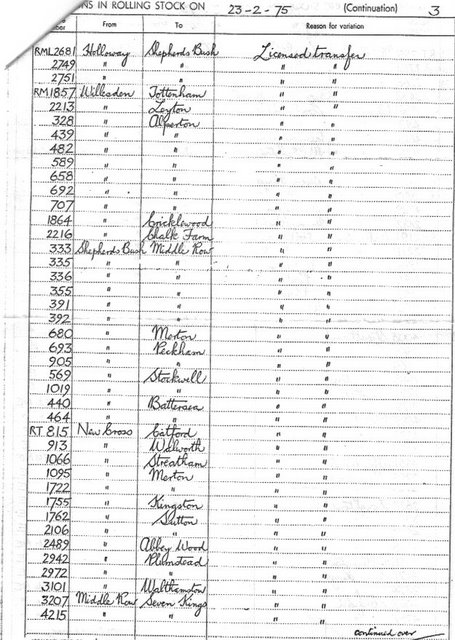 NS IN ROLLING STOCK ON 23-2-75 (Continuation) 3
mber From To Reason for variation
RML2681 Holloway Shepherds Bush Licensed transfer
2749 " " " "
2751 " " " "
RM1857 Willesden Tottenham " "
2213 " Leyton " "
328 " Alperton " "
439 " " " "
482 " " " "
589 " " " "
658 " " " "
692 " " " "
707 " " " "
1864 " Cricklewood " "
2216 " Chalk Farm " "
333 Shepherds Bush Middle Row " "
335 " " " "
336 " " " "
355 " " " "
391 " " " "
392 " " " "
680 " Merton " "
693 " Peckham " "
905 " " " "
569 " Stockwell " "
1019 " " " "
440 " Battersea " "
464 " " " "
RT 815 New Cross Catford " "
913 " Walworth " "
1066 " Streatham " "
1095 " Merton " "
1722 " " " "
1755 " Kingston " "
1762 " Sutton " "
2106 " " " "
2489 " Abbey Wood " "
2942 " Plumstead " "
2972 " " " "
3101 " Walthamstow " "
3207 Middle Row Seven Kings " "
4215 " " " "
continued over